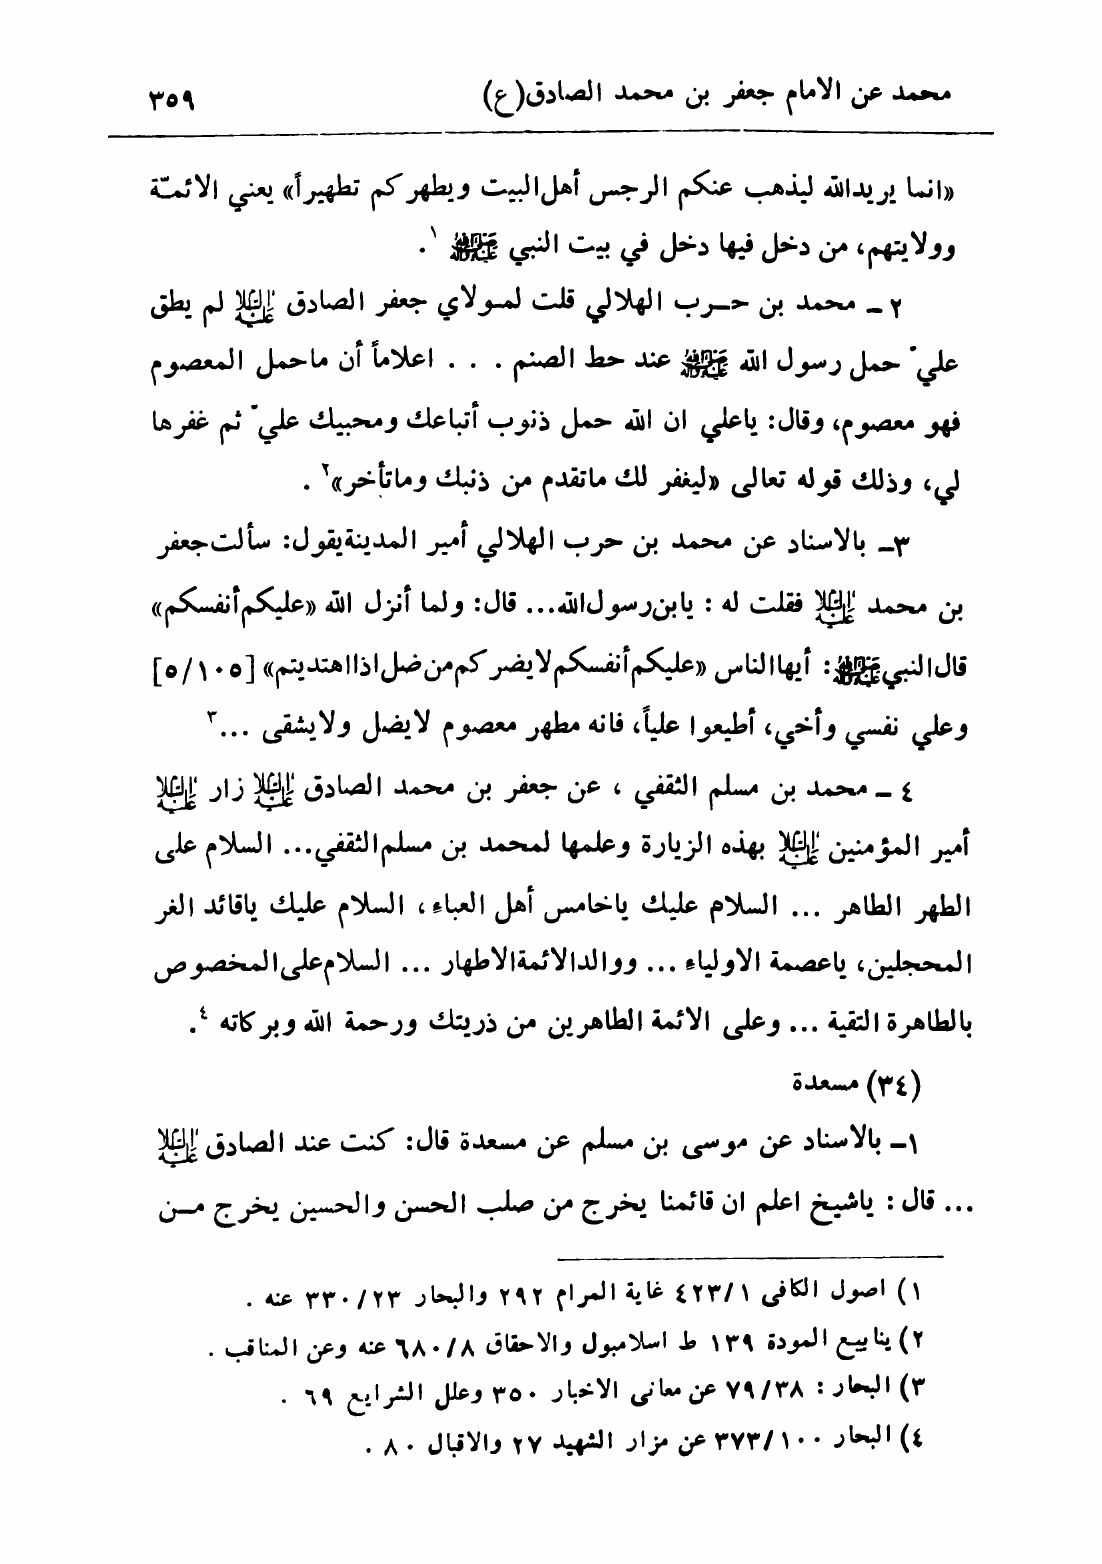 محمد عن الامام جعفر بن محمد الصادق(ع) ٣٥٩
«انما يريدالله ليذهب عنكم الرجس أهل البيت ويطهركم تطهيراً» يعني الائمّة
وولايتهم، من دخل فيها دخل في بيت النبي ﷺ ١.
٢ ــ محمد بن حــرب الهلالي قلت لمولاي جعفر الصادق عليه السلام لم يطق
عليّ حمل رسول الله ﷺ عند حط الصنم . . . اعلاماً أن ماحمل المعصوم
فهو معصوم، وقال: ياعلي ان الله حمل ذنوب أتباعك ومحبيك عليّ ثم غفرها
لي، وذلك قوله تعالى «ليغفر لك ماتقدم من ذنبك وماتأخر»٢ .
٣ــ بالاسناد عن محمد بن حرب الهلالي أمير المدينة يقول: سألت جعفر
بن محمد عليه السلام فقلت له : يابن رسول الله... قال: ولما أنزل الله «عليكم أنفسكم»
قال النبي ﷺ: أيها الناس «عليكم أنفسكم لايضركم من ضل اذا اهتديتم» [٥/١٠٥]
وعلي نفسي وأخي، أطيعوا علياً، فانه مطهر معصوم لايضل ولايشقى ...٣
٤ ــ محمد بن مسلم الثقفي ، عن جعفر بن محمد الصادق عليه السلام زار عليه السلام
أمير المؤمنين عليه السلام بهذه الزيارة وعلمها لمحمد بن مسلم الثقفي... السلام على
الطهر الطاهر ... السلام عليك ياخامس أهل العباء، السلام عليك ياقائد الغر
المحجلين، ياعصمة الاولياء ... ووالد الائمة الاطهار ... السلام على المخصوص
بالطاهرة التقية ... وعلى الائمة الطاهرين من ذريتك ورحمة الله وبركاته ٤.
(٣٤) مسعدة
١ــ بالاسناد عن موسى بن مسلم عن مسعدة قال: كنت عند الصادق عليه السلام
... قال : ياشيخ اعلم ان قائمنا يخرج من صلب الحسن والحسين يخرج مــن
١) اصول الكافى ٤٢٣/١ غاية المرام ٢٩٢ والبحار ٣٣٠/٢٣ عنه .
٢) ينابيع المودة ١٣٩ ط اسلامبول والاحقاق ٦٨٠/٨ عنه وعن المناقب .
٣) البحار : ٧٩/٣٨ عن معانى الاخبار ٣٥٠ وعلل الشرايع ٦٩ .
٤) البحار ٣٧٣/١٠٠ عن مزار الشهيد ٢٧ والاقبال ٨٠ .